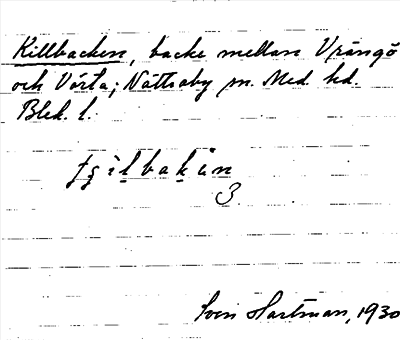 Killbacken, backe mellan Vrångö
och Vörta; Nättraby sn. Med. hd.
Blek. l.
3
Sven Hartman, 1930